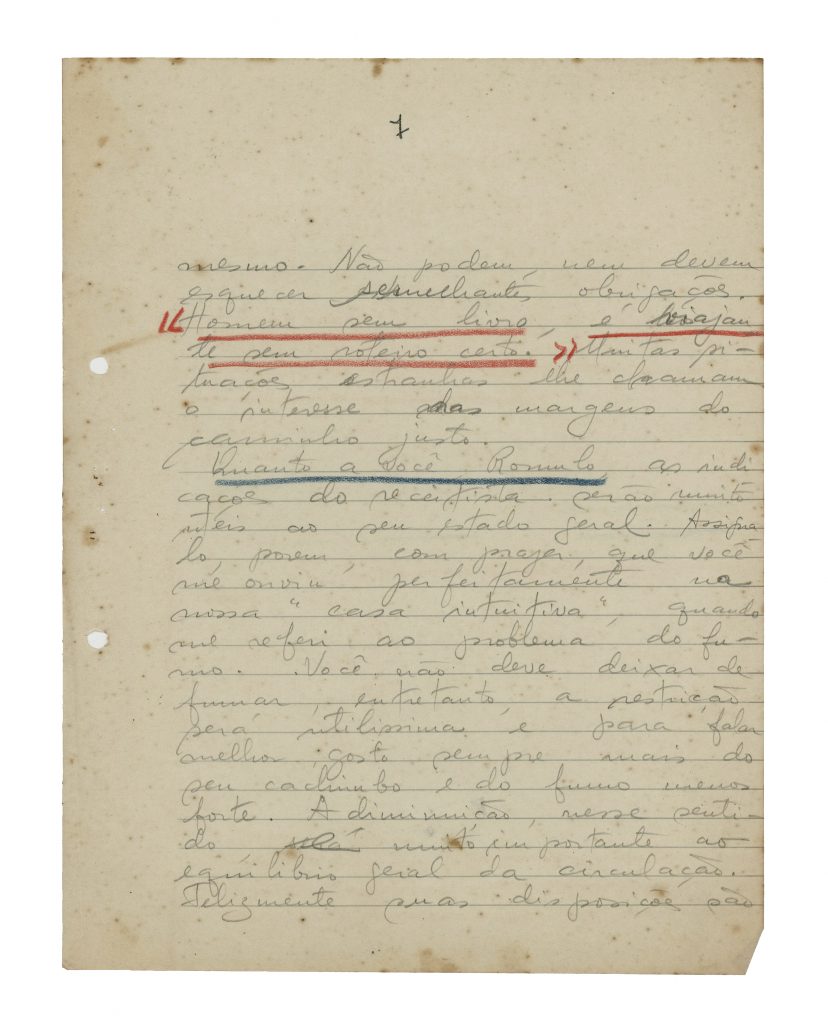 7
mesmo. Não podem, nem devem
esquecer semelhantes obrigações.
"Homem sem livro, é viajan
te sem roteiro certo." Muitas si-
tuações estranhas lhe chamam
o interesse das margens do
caminho justo.
Quanto a você Romulo, as indi
cações do receitista serão muito
uteis ao seu estado geral. Assina
lo, porem, com prazer, que você
me ouviu perfeitamente na
nossa "casa intuitiva", quando
me referi ao problema do fu-
mo. Você não deve deixar de
fumar, entretanto, a restrição
será utilissima e para falar
melhor, gosto sempre mais do
seu cachimbo e do fumo menos
forte. A diminuição, nesse senti-
do será muito importante ao
equilibrio geral da circulação.
Felizmente suas disposições são